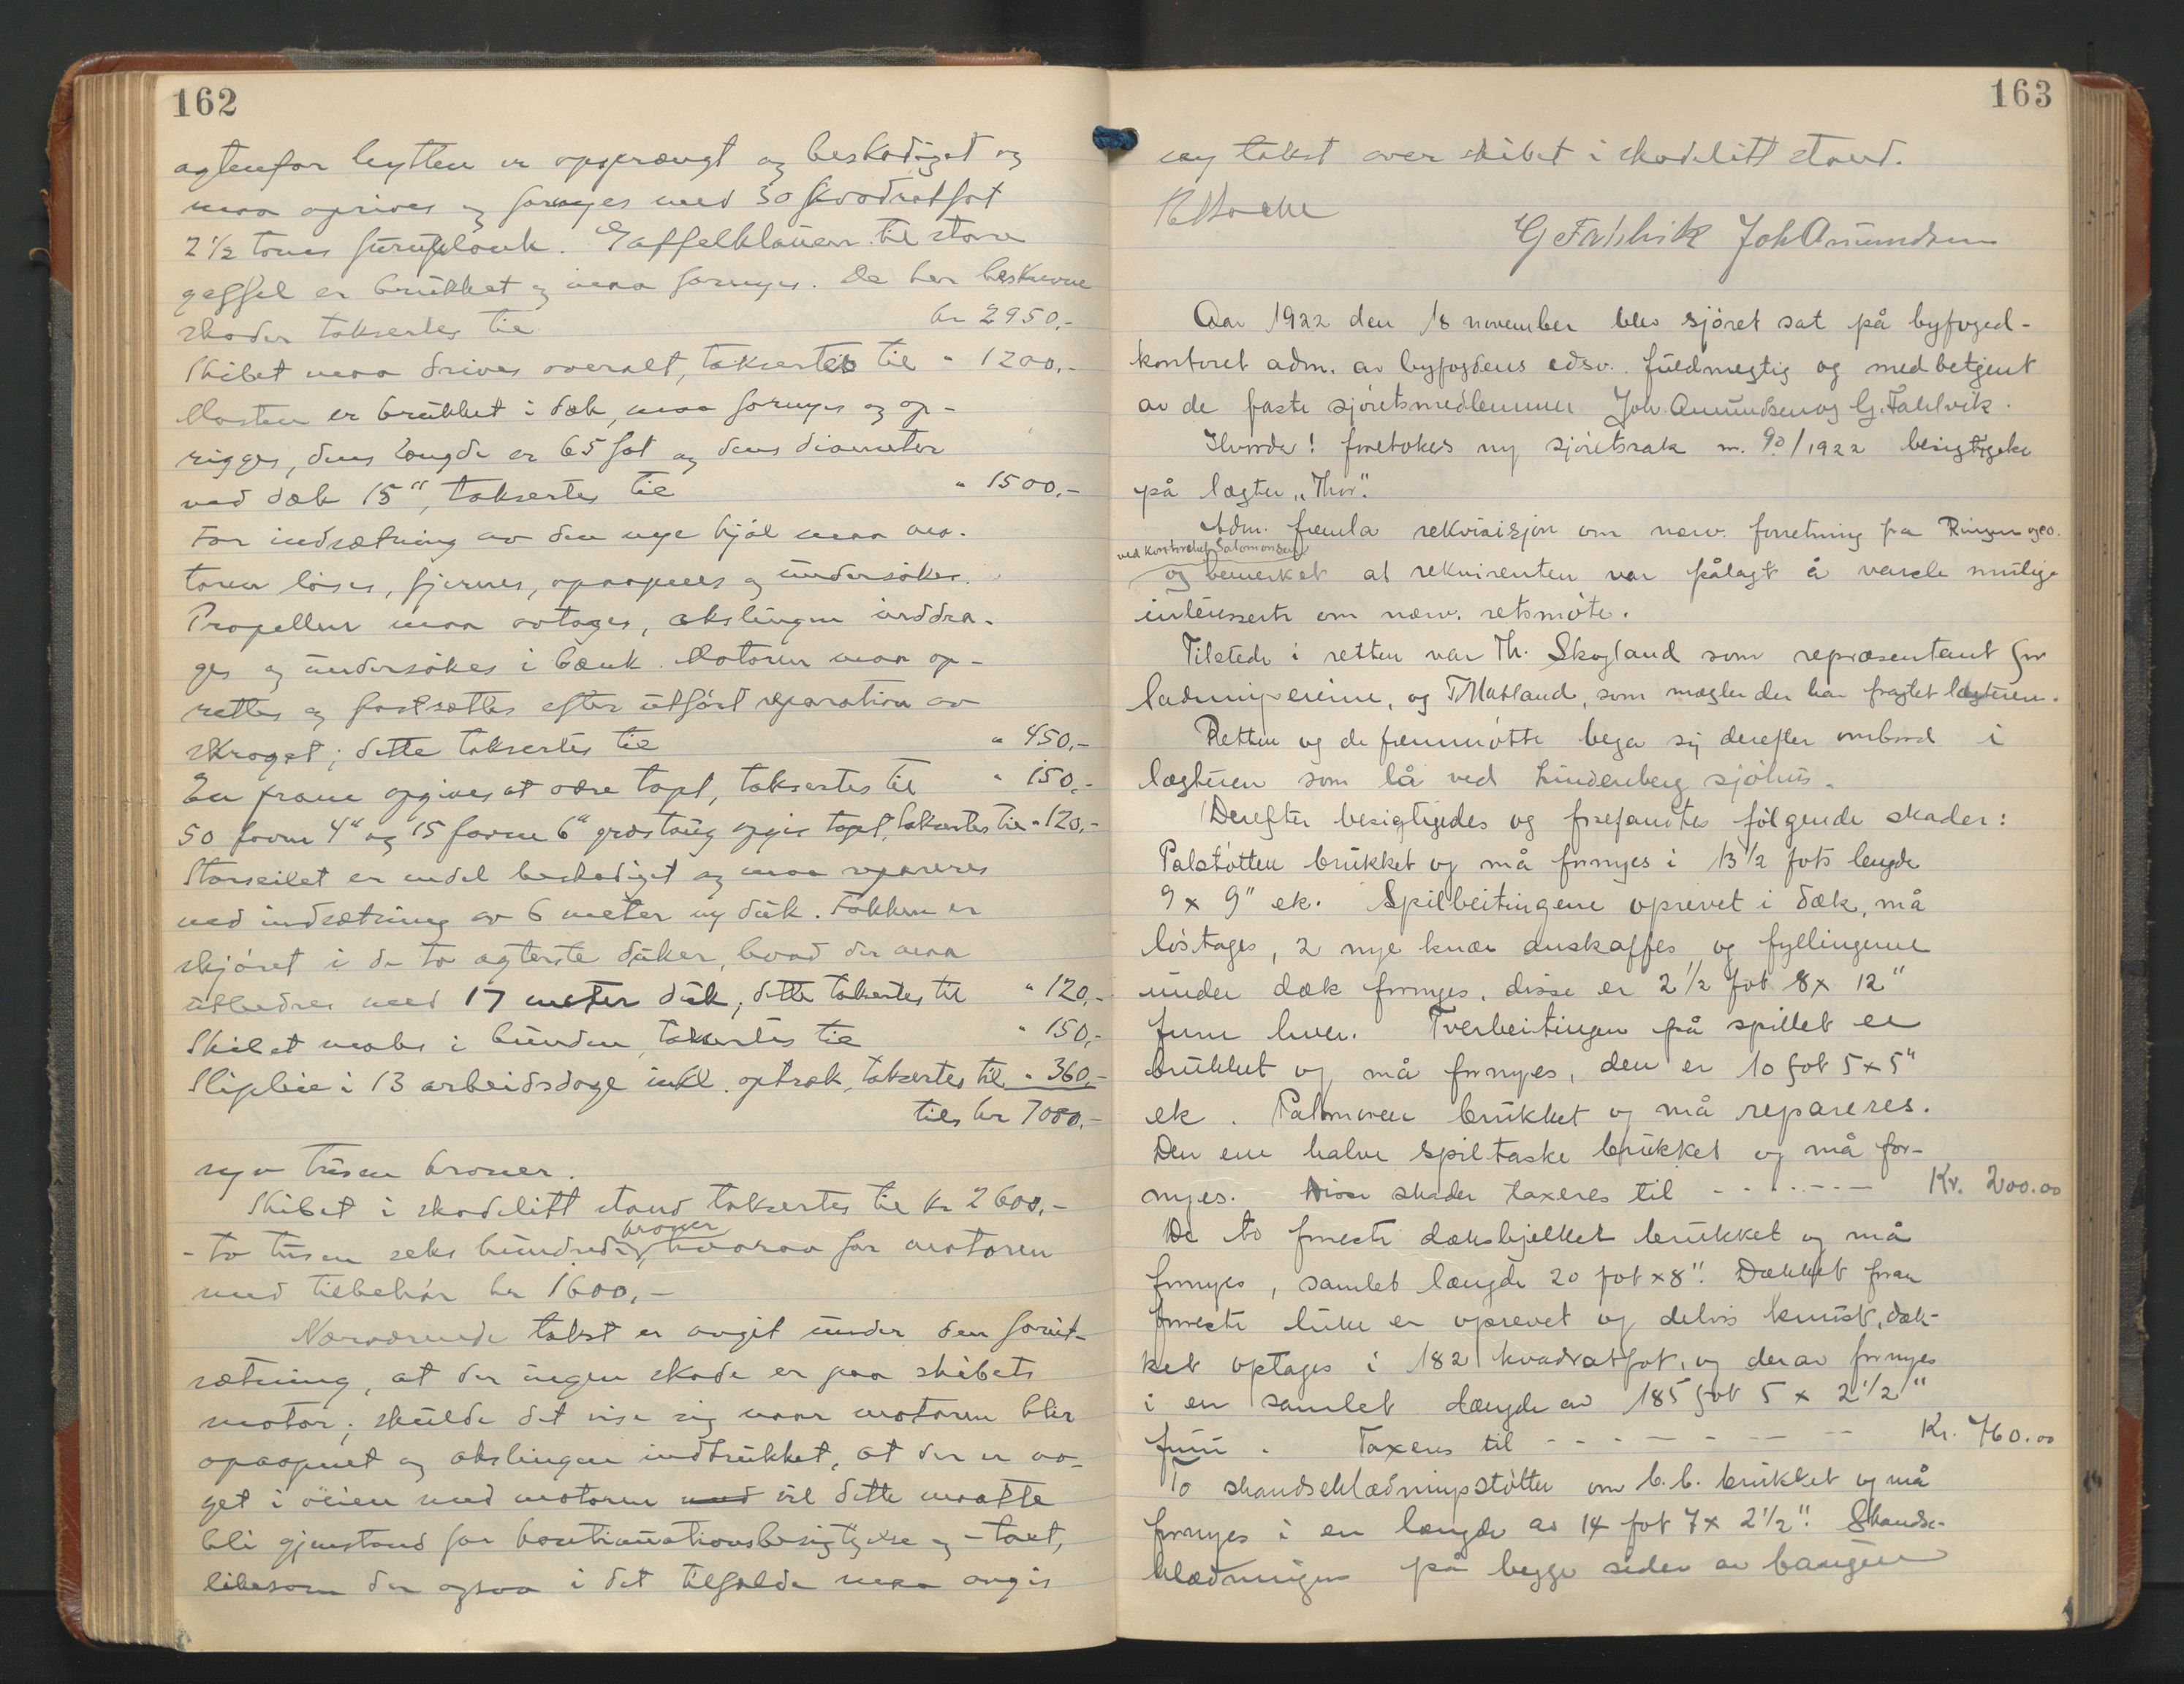 162
agtenfor hytten er opsprængt og beskadiget og
maa oprives og fornyes med 30 kvadratfot
2 1/2 toms furuplank. Gaffelklauen til store
gaffel er brukket og maa fornyes. De her beskrevne
skader taksertes til kr 2950,-
Skibet maa drives overalt, taksertes til " 1200,-
Masten er brukket i dæk, maa fornyes og op-
rigges, dens længde er 65 fot og dens diameter
ved dæk 15", taksertes til " 1500,-
For indsætning av den nye kjøl maa mo-
toren løses, fjernes, opaapnes og undersøkes.
Propellen maa avtages, akslingen inddra-
ges og undersøkes i bænk. Motoren maa op-
rettes og fastsættes efter utført reparation av
skroget; dette taksertes til " 450,-
En pram opgives at være tapt, taksertes til " 150,-
50 favne 4" og 15 favne 6" græstaug opgis tapt, taksertes til " 120,-
Storseilet er endel beskadiget og maa repareres
ved indsætning av 6 meter ny duk. Fokken er
skjøret i de to agterste duker, hvad der maa
utbedres med 17 meter duk, dette taksertes til " 120,-
Skibet males i bunden, taksertes til " 150,-
Slipleie i 13 arbeidsdage inkl. optræk, taksertes til " 360,-
tils kr 7000,-
syv tusen kroner.
Skibet i skadelitt stand taksertes til kr 2600,-
- to tusen seks hundrede kroner, hvorav for motoren
med tilbehør kr 1600,-
Nærværende takst er avgit under den forut-
sætning, at der ingen skade er paa skibets
motor; skulde det vise sig naar motoren blir
opaapnet og akslingen indtrukket, at der er no-
get i veien med motoren med vil dette maatte
bli gjenstand for kontinuationsbesigtigelse og -takst,
likesom der ogsaa i det tilfælde maa avgis
163
ny takst over skibet i skadelitt stand.
G Fahlvik Joh Amundsen
Aar 1922 den 18 november blev sjöret sat på byfoged-
kontoret adm. av byfogdens edsv. fuldmegtig og med betjent
av de faste sjöretsmedlemmer Joh. Amundsen og G. Fahlvik.
Hvorda! foretokes ny sjöretssak nr. 90/1922 besigtigelse
på lægter "Thor".
Adm. fremla rekvisisjon om nærv. forretning fra Ringen & co.
ved kontorchef Salomonsen
og bemerket at rekvirenten var pålagt å varsle mulige
interesserte om nærv. retsmöte.
Tilstede i retten var Th. Skogland som repræsentant for
ladningseierne, og T. Matland, som mægler der har fragtet lægteren.
Retten og de fremmötte bega sig derefter ombord i
lægteren som lå ved Lindenberg sjöhus.
Derefter besigtigedes og forefantes fölgende skader:
Palstötten brukket og må fornyes i 13 1/2 fots lengde
9 x 9" ek. Spilbeitingene oprevet i dæk, må
löstages, 2 nye knær anskaffes og fyllingerne
under dæk fornyes, disse er 2 1/2 fot 8 x 12"
furu hver. Tverbeitingen på spillet er
brukket og må fornyes, den er 10 fot 5 x 5"
ek. Palmoren brukket og må repareres.
Den ene halve spiltaske brukket og må for-
nyes. Disse skader taxeres til - - - - - - - Kr. 200.00
De to forreste dæksbjelker brukket og må
fornyes, samlet længde 20 fot x 8". Dækket foran
forreste luke er oprevet og delvis knust, dæk-
ket optages i 182 kvadratfot, og derav fornyes
i en samlet længde av 185 fot 5 x 2 1/2"
furu. Taxeres til - - - - - - - - Kr. 760.00
To skandseklædningsstötter om b.b. brukket og må
fornyes i en længde av 14 fot 7 x 2 1/2". Skandse-
klædningen på begge sider av baugen